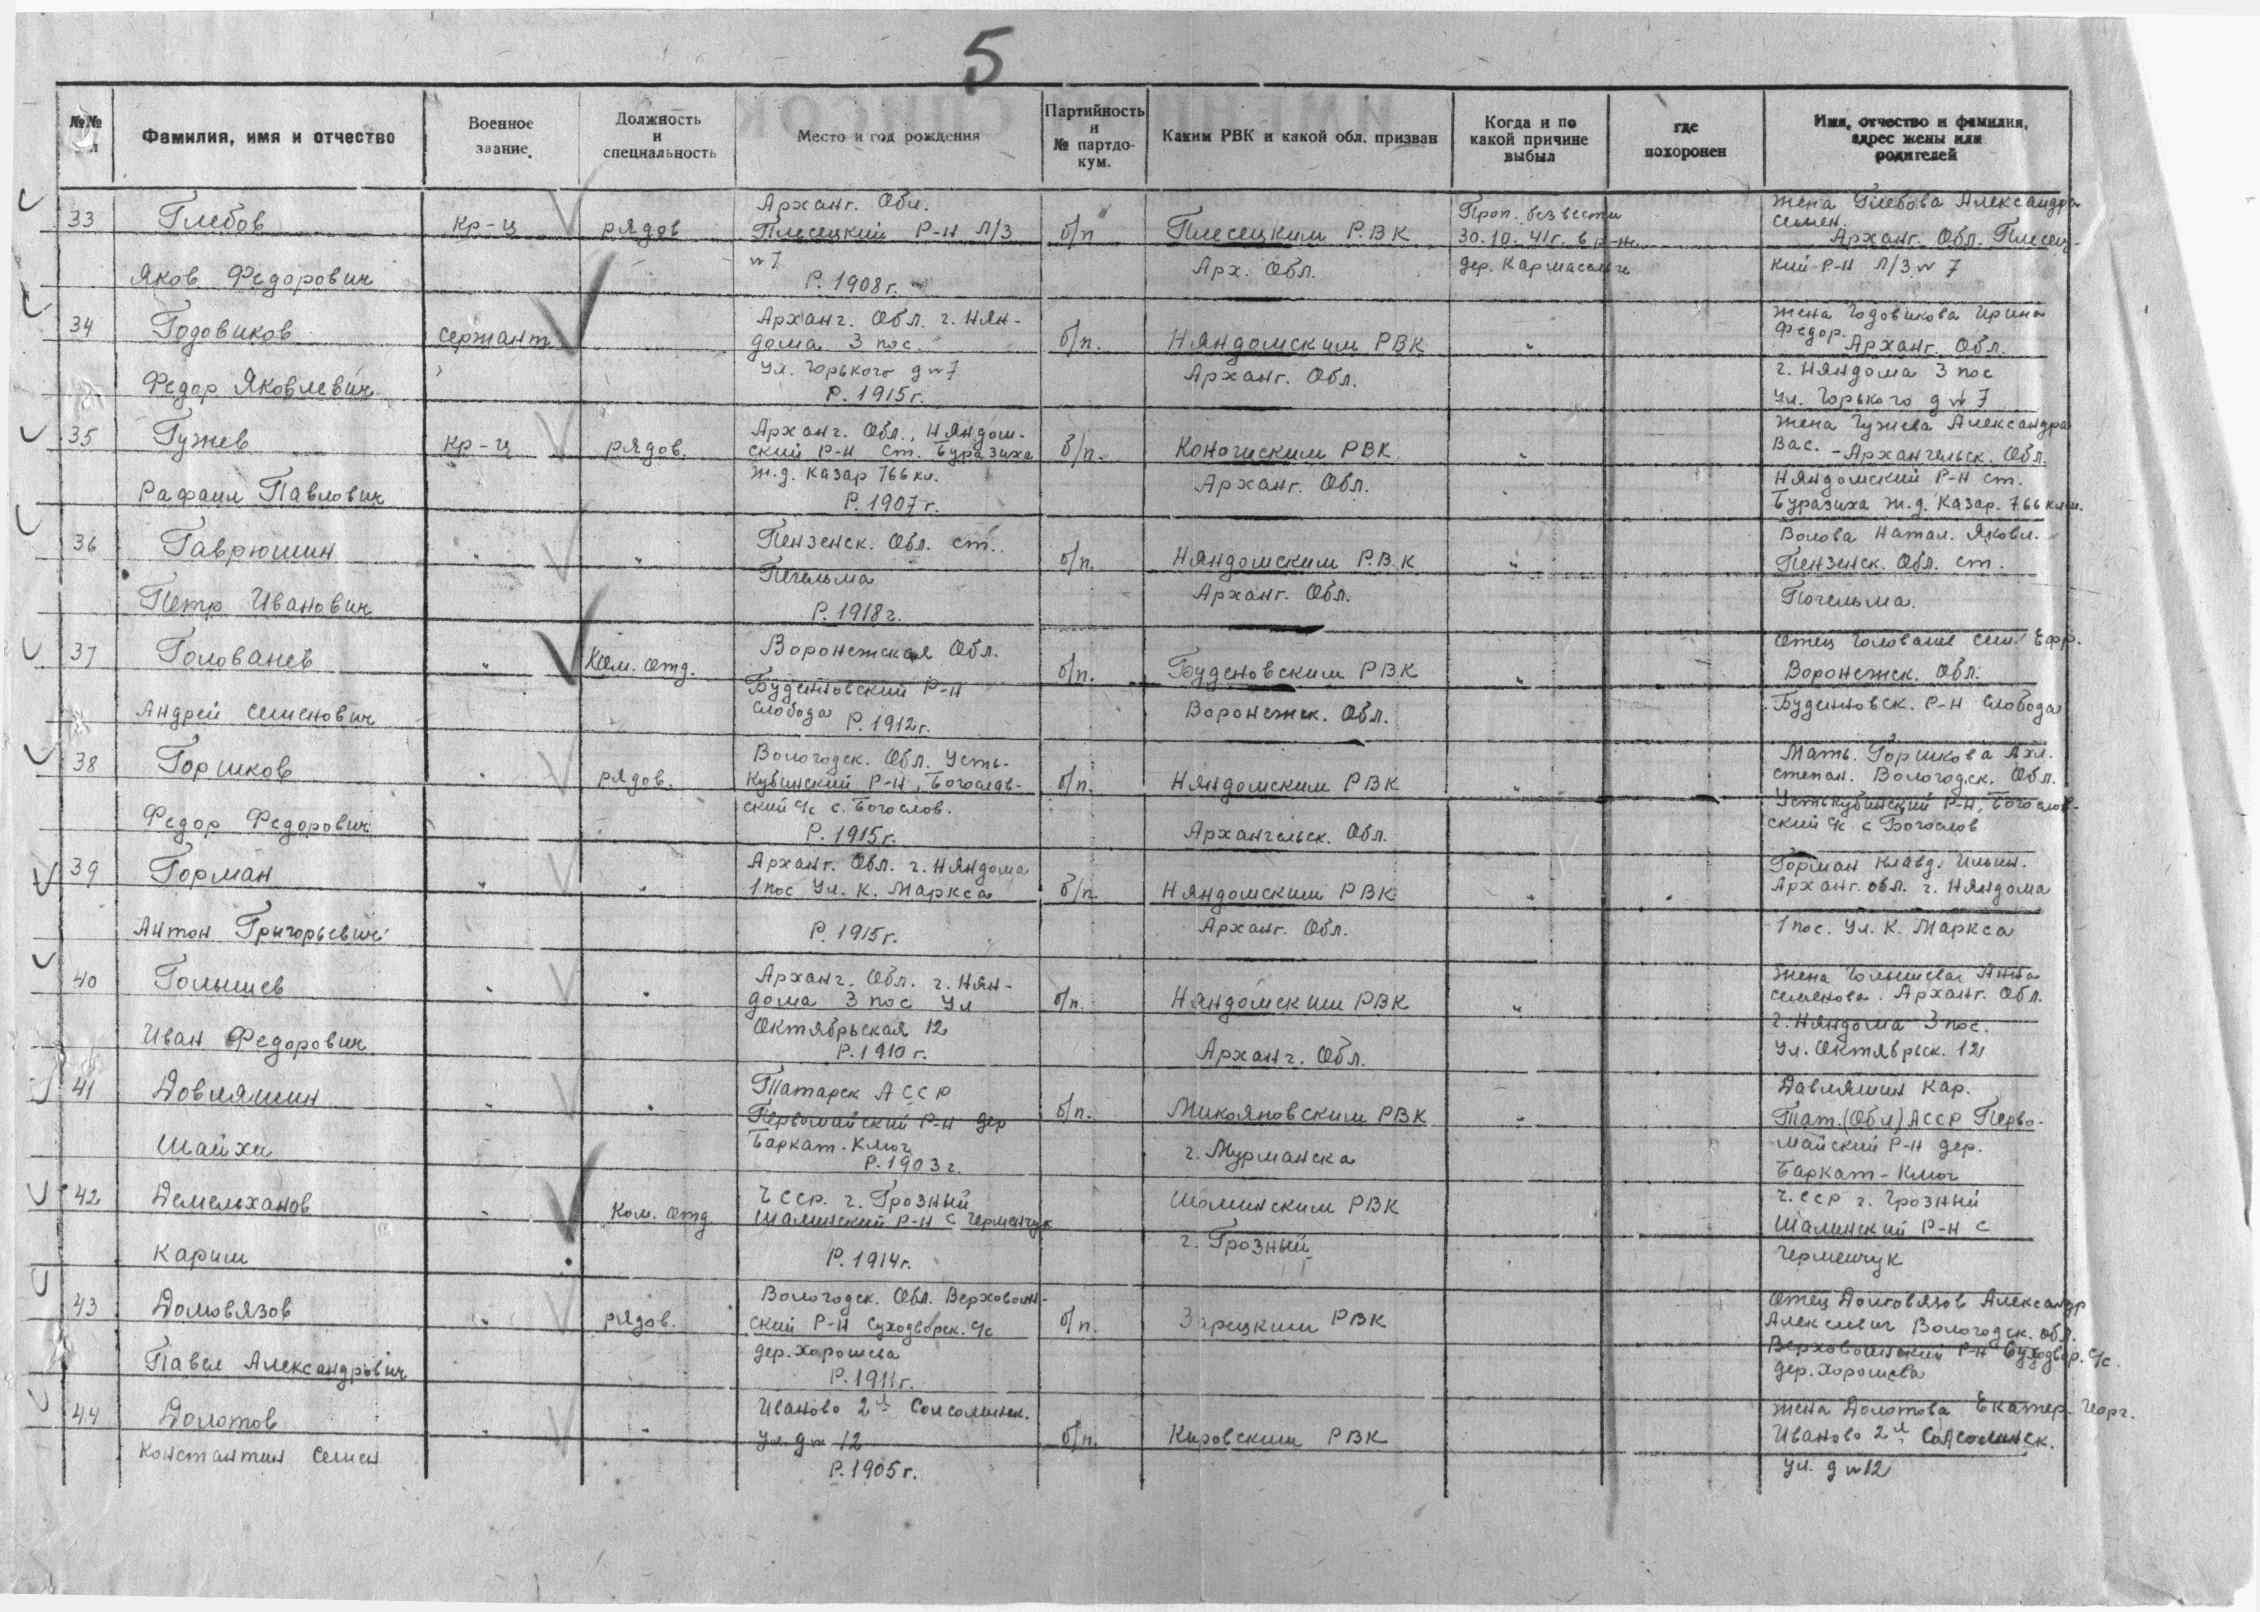 5
№№ Фамилия, имя и отчество Военное звание Должность и специальность Место и год рождения Партийность и № партдокум. Каким РВК и какой обл. призван Когда и по какой причине выбыл где похоронен Имя, отчество и фамилия, адрес жены или родителей
33 Глебов кр-ц рядов Арханг. Обл. Плесецкий Р-Н Л/З б/п Плесецким РВК Проп. без вести 30.10.41г. в р-не Жена Глебова Александра Семен. Арханг. Обл. Плесец-
Яков Федорович №7 Р. 1908г. Арх. Обл. дер. кий Р-Н Л/З № 7
34 Годовиков сержант Арханг. Обл. г. Нян-дома 3 пос. б/п. Няндомским РВК " Жена Годовикова Ирина Федор. Арханг. Обл.
Федор Яковлевич Ул. Горького д №7 Р. 1915г. Арханг. Обл. г. Няндома 3 пос Ул. Горького д № 7
35 Гужев кр-ц рядов. Арханг. Обл., Няндом-ский Р-Н Ст. Бурачиха б/п. Коношским РВК " Жена Гужева Александра Вас. - Архангельск. Обл.
Рафаил Павлович ж.д. Казар 766 кл. Р. 1907г. Арханг. Обл. Няндомский Р-Н ст. Бурачиха ж.д. Казар. 766 клм.
36 Гаврюшин " " Пензенск. Обл. ст. б/п. Няндомским РВК " Волова Натал. Яковл. Пензенск. Обл. ст.
Петр Иванович Пачельма Р. 1918г. Арханг. Обл. Почельма.
37 Голованев " Ком. отд. Воронежская Обл. б/п. Буденовским РВК " отец Голованев Сем. Ефр. Воронежск. Обл.
Андрей Семенович Буденновский Р-Н Слобода Р. 1912г. Воронежск. Обл. Буденновск. Р-Н Слобода
38 Горшков " рядов. Вологодск. Обл. Усть-Кубинский Р-Н, Богослов- б/п. Няндомским РВК " Мать. Горшкова степан. Вологодск. Обл.
Федор Федорович ский с/с с. Богослов. Р. 1915г. Архангельск. Обл. Устькубинский Р-Н, Богослов-ский с/с с Богослов
39 Горман " " Арханг. Обл. г. Няндома 1 пос Ул. К. Маркса б/п Няндомским РВК " Горман Клавд. Ильин. Арханг. обл. г. Няндома
Антон Григорьевич Р. 1915г. Арханг. Обл. 1 пос. Ул. К. Маркса
40 Голышев " " Арханг. Обл. г. Нян-дома 3 пос Ул б/п. Няндомским РВК " Жена Голышева Анна семенова. Арханг. Обл.
Иван Федорович Октябрьская 12 Р. 1910г. Арханг. Обл. г. Няндома 3 пос. Ул. Октябрьск. 12
41 Довляшин " " Татарск АССР б/п. Микояновским РВК " Давляшин Кар. Тат.(Обл) АССР Перво-
Шайхи Первомайский Р-Н дер Баркат-Ключ Р. 1903г. г. Мурманска майский Р-Н дер. Баркат-Ключ
42 Демельханов " Ком. отд Ч ССР. г. Грозный Шалинский Р-Н с Герменчук Шалинским РВК Ч. ССР г. Грозный Шалинский Р-Н с
Карим Р. 1914г. г. Грозный Герменчук
43 Доловязов " рядов. Вологодск. Обл. Верховаж-ский Р-Н Суходворск. с/с б/п. Зарецким РВК отец Долговязов Александр Алексеевич Вологодск. обл.
Павел Александрович дер. Хорошева Р. 1911г. Верховажский Р-Н Суходвор. с/с. дер. Хорошева
44 Долотов " " Иваново 2й б/п. Кировским РВК Жена Долотова Екатер. Георг. Иваново 2й
Константин Семен ул. д № 12 Р. 1905г. ул. д №12